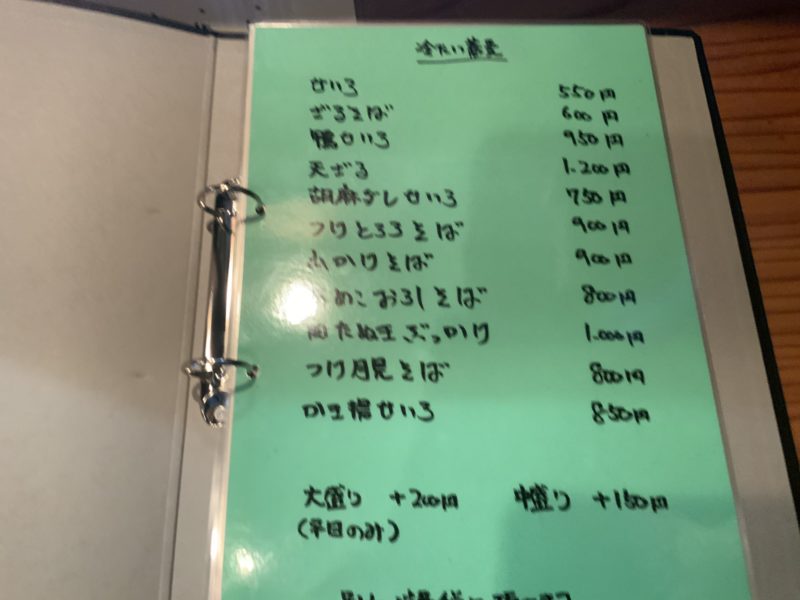 冷たい蕎麦
せいろ 550円
ざるそば 600円
鴨せいろ 950円
天ざる 1.200円
胡麻ダレせいろ 750円
つけとろろそば 900円
山かけそば 900円
なめこおろしそば 800円
たぬきぶっかけ 1.000円
つけ月見そば 800円
かき揚せいろ 850円
大盛り +200円 中盛り +150円
(平日のみ)